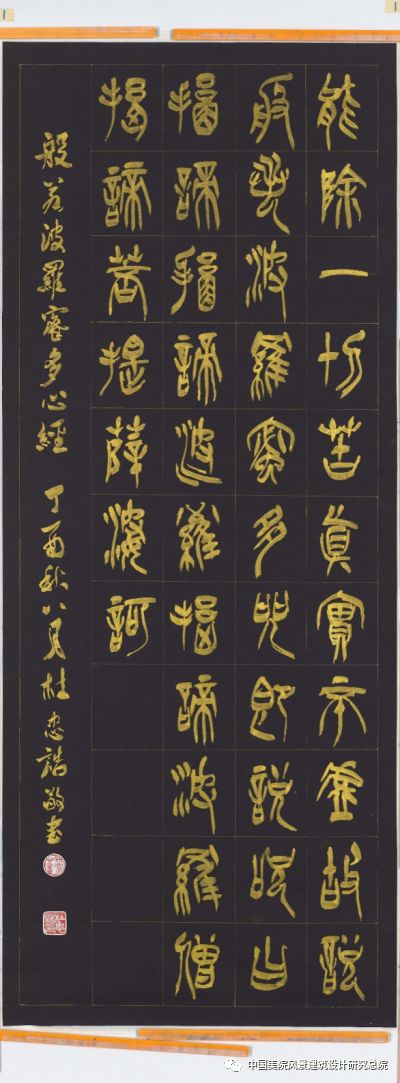 能除一切苦眞實不虛故說
般若波羅蜜多咒即說咒曰
揭諦揭諦波羅揭諦波羅僧
揭諦菩提薩婆訶
般若波羅密多心經 丁酉秋八月杜忠誥敬書
中国美院风景建筑设计研究总院